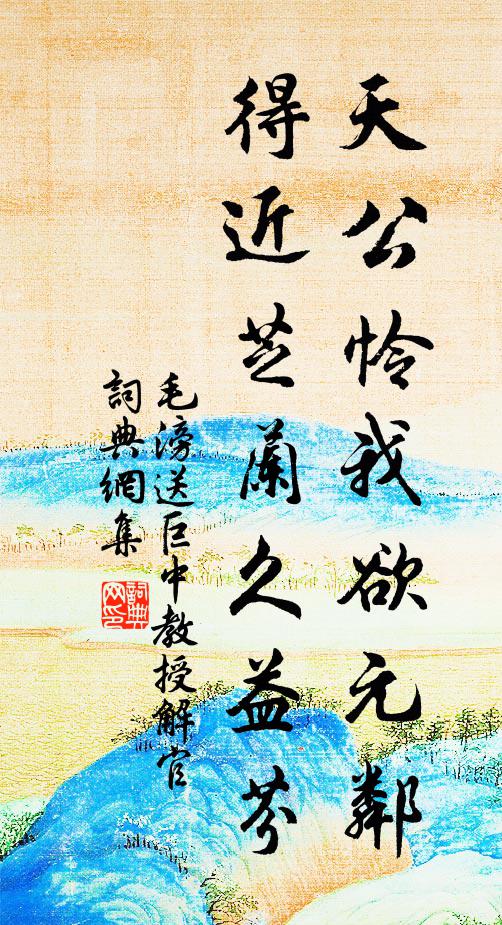 天公怜我欲元鄰
得近芝蘭久益芬
毛滂送巨中教授解官
詞典網集
詞典
网印